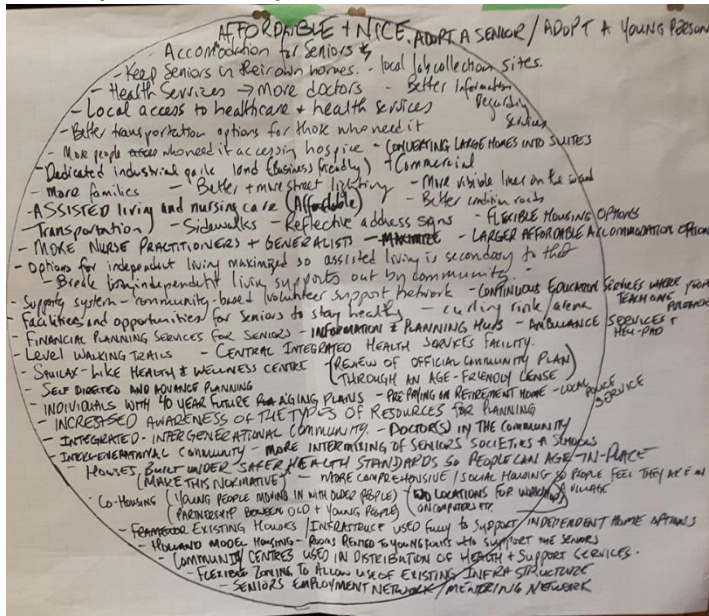 AFFORDABLE + NICE, ADOPT A SENIOR / ADOPT A YOUNG PERSON
- Accomodation for Seniors
- Keep Seniors in their own homes. - local lab collection sites.
- Health Services → More doctors - Better information Regarding Services
- Local access to healthcare + health services
- Better transportation options for those who need it
- More people who need it accessing hospice - CONVERTING LARGE HOMES INTO SUITES
- Dedicated industrial park land (Business friendly) + Commercial
- More families - Better + more street lighting - More visible lines on the road
- ASSISTED living and nursing care (Affordable) - Better condition roads
Transportation) - Sidewalks - Reflective address signs - FLEXIBLE HOUSING OPTIONS
- MORE NURSE PRACTITIONERS + GENERALISTS - LARGER AFFORDABLE ACCOMMODATION OPTION
- Options for independent living maximized so assisted living is secondary to that
- Break independent living supports out by community.
- Support system - community-based volunteer support network - CONTINUOUS EDUCATION SERVICES WHERE PEOPLE TEACH ONE ANOTHER
- Facilities and opportunities for seniors to stay healthy - curling rink/arena
- FINANCIAL PLANNING SERVICES FOR SENIORS - INFORMATION & PLANNING HUBS - AMBULANCE SERVICES + HELI-PAD
- Level WALKING TRAILS - CENTRAL INTEGRATED HEALTH SERVICES FACILITY.
- SQUILAX-LIKE HEALTH & WELLNESS CENTRE (REVIEW OF OFFICIAL COMMUNITY PLAN THROUGH AN AGE-FRIENDLY LENSE)
- SELF DIRECTED AND ADVANCE PLANNING
- INDIVIDUALS WITH 40 YEAR FUTURE AGING PLANS - PREPAYING ON RETIREMENT HOME - LOCAL POLICE SERVICE
- INCREASED AWARENESS OF THE TYPES OF RESOURCES FOR PLANNING
- INTEGRATED - INTERGENERATIONAL COMMUNITY. - DOCTOR(S) IN THE COMMUNITY
- INTERGENERATIONAL COMMUNITY - MORE INTERMIXING OF SENIORS SOCIETIES & SCHOOLS
- HOUSES BUILT UNDER SAFER HEALTH STANDARDS SO PEOPLE CAN AGE-IN-PLACE
(MAKE THIS NORMATIVE) - MORE COMPREHENSIVE/SOCIAL HOUSING SO PEOPLE FEEL THEY ARE IN A VILLAGE
- CO-HOUSING (YOUNG PEOPLE MOVING IN WITH OLDER PEOPLE) LOCATIONS FOR WORKING
(PARTNERSHIP BETWEEN OLD + YOUNG PEOPLE) ON COMPUTERS ETC.
- EXISTING HOUSES/INFRASTRUCE USED FULLY TO SUPPORT INDEPENDENT HOME OPTIONS
- HOLLAND MODEL HOUSING - ROOMS RENTED TO YOUNG FOLKS WHO SUPPORT THE SENIORS
- COMMUNITY CENTRES USED IN DISTRIBUTION OF HEALTH + SUPPORT SERVICES.
- FLEXIBLE ZONING TO ALLOW USE OF EXISTING INFRASTRUCTURE
- SENIORS EMPLOYMENT NETWORK/MENTORING NETWORK